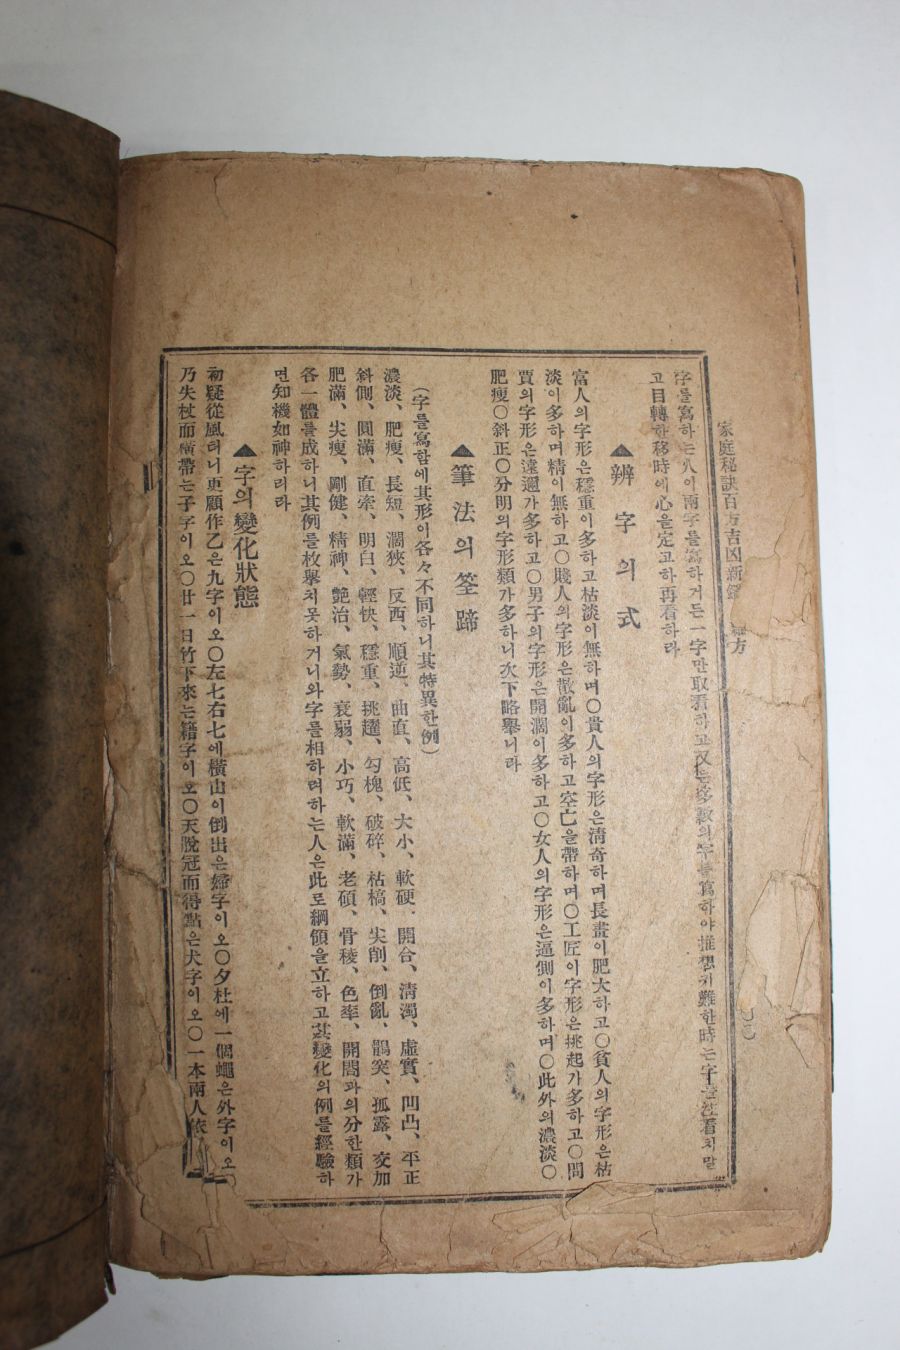 家庭秘訣百方吉凶新鑑
字를寫하는人이兩字를寫하거든一字만取看하고又는多數의字를寫하야推想키難한時는字를注看치말
고目轉한移時에心을定고하再看하라
▲辨字의式
富人의字形은穩重이多하고枯淡이無하며○貴人의字形은淸奇하며長畫이肥大하고○貧人의字形은枯
淡이多하며精이無하고○賤人의字形은散亂이多하고空亡을帶하며○工匠이字形은挑起가多하고○問
賈의字形은遠邇가多하고○男子의字形은開濶이多하고○女人의字形은逼側이多하며○此外의濃淡○
肥瘦○斜正○分明의字形類가多하니次下略擧니라
▲筆法의筌蹄
(字를寫함에其形이各々不同하니其特異한例)
濃淡、肥瘦、長短、濶狹、反西、順逆、曲直、高低、大小、軟硬、開合、淸濁、虛實、凹凸、平正
斜側、圓滿、直牽、明白、輕快、穩重、挑趯、勾槐、破碎、枯槁、尖削、倒亂、鶻突、孤露、交加
肥滿、尖瘦、剛健、精神、艶治、氣勢、衰弱、小巧、軟滿、老碩、骨稜、色率、開闊과의分한類가
各一體를成하니其例를枚擧치못하거니와字를相하려하는人은此로綱領을立하고其變化의例를經驗하
면知機如神하리라
▲字의變化狀態
初疑從風러니更願作乙은九字이오○左七右七에橫山이倒出은婦字이오○夕杜에一個蠅은外字이오○
乃失杖而橫帶는子字이오○廿一日竹下來는籍字이오○天脫冠而得點은犬字이오○一本兩人依